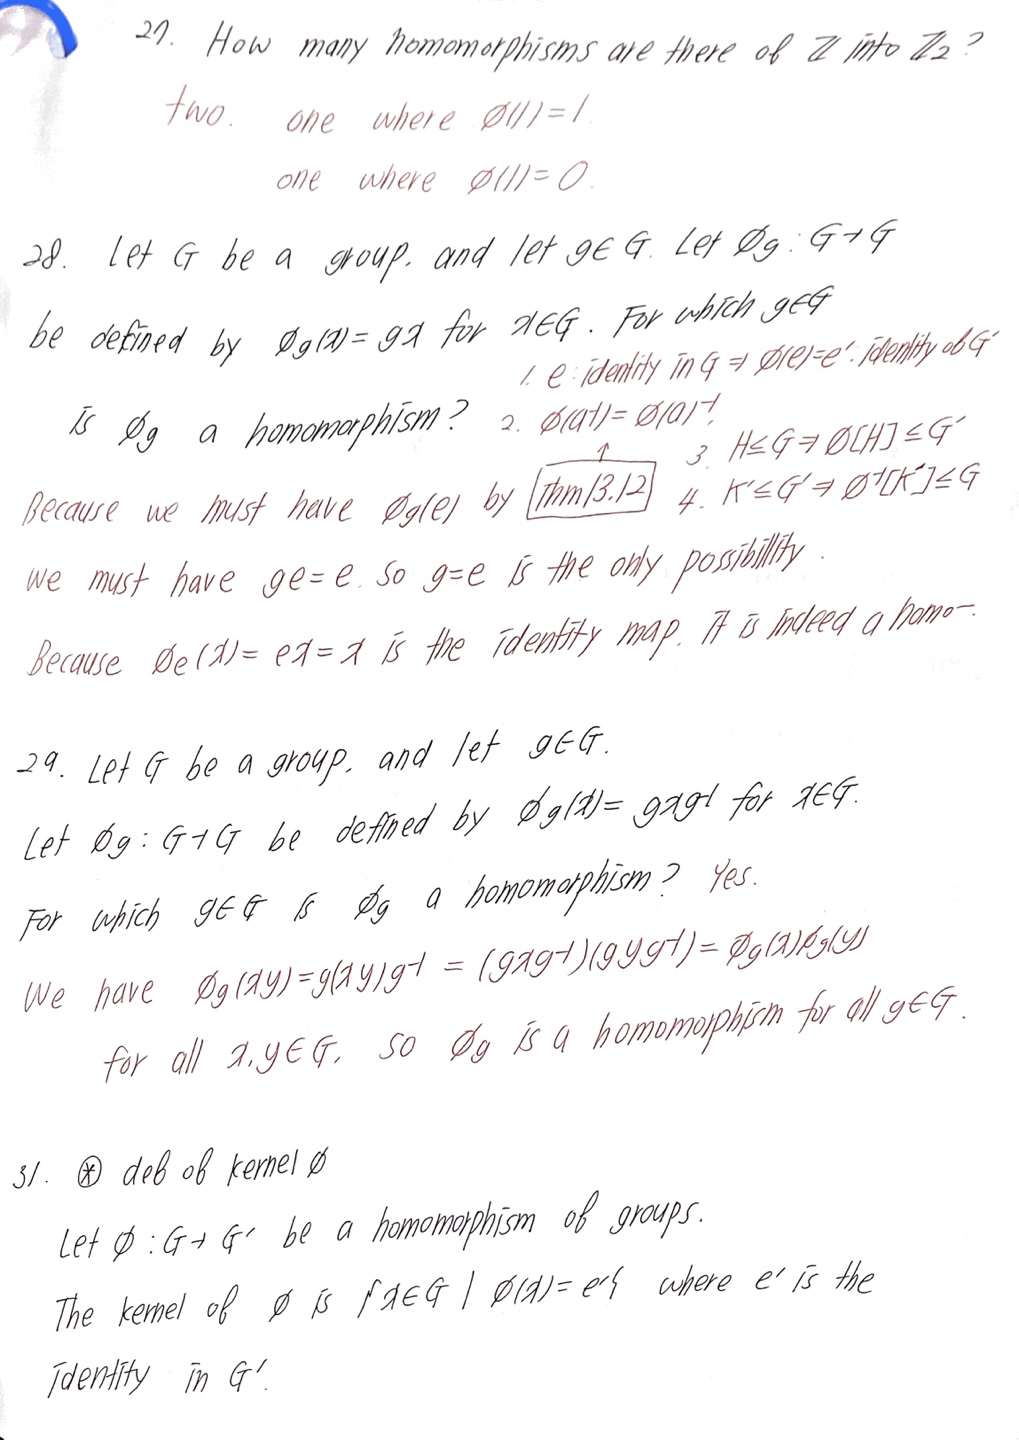 27. How many homomorphisms are there of ℤ into ℤ₂?
two. one where ø(1)=1.
one where ø(1)=0.
28. Let G be a group, and let g∈G. Let øg : G→G
be defined by øg(x)=gx for x∈G. For which g∈G
1. e : identity in G ⇒ ø(e)=e' : identity of G'
is øg a homomorphism? 2. ø(a⁻¹)=ø(a)⁻¹.
↑ 3. H≤G ⇒ ø[H]≤G'
Because we must have øg(e) by Thm13.12 4. K'≤G' ⇒ ø⁻¹[K']≤G
we must have ge=e. so g=e is the only possibillity.
Because øe(x)=ex=x is the identity map. It is indeed a homo-.
29. Let G be a group, and let g∈G.
Let øg : G→G be defined by øg(x)=gxg⁻¹ for x∈G.
For which g∈G is øg a homomorphism? Yes.
We have øg(xy)=g(xy)g⁻¹ = (gxg⁻¹)(gyg⁻¹)=øg(x)øg(y)
for all x,y∈G, so øg is a homomorphism for all g∈G.
31. ⊛ def of kernel ø
Let ø : G→G' be a homomorphism of groups.
The kernel of ø is {x∈G | ø(x)=e'} where e' is the
identity in G'.